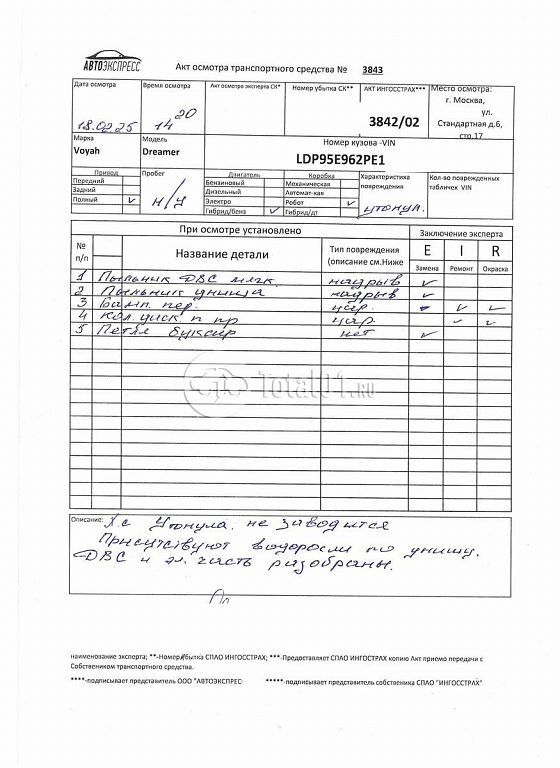 АВТОЭКСПРЕСС
Акт осмотра транспортного средства № 3843
Дата осмотра
18.02.25
Время осмотра
14 20
Акт осмотра эксперта СК*
Номер убытка СК**
АКТ ИНГОССТРАХ***
3842/02
Место осмотра:
г. Москва,
ул.
Стандартная д.6,
стр.17
Марка
Voyah
Модель
Dreamer
Номер кузова -VIN
LDP95E962PE1
Привод
Передний
Задний
Полный V
Пробег
н/у
Двигатель
Бензиновый
Дизельный
Электро
Гибрид/бенз V
Коробка
Механическая
Автомат-кая
Робот V
Гибрид/дт
Характеристика
повреждения
утонул.
Кол-во поврежденных
табличек VIN
При осмотре установлено
Заключение эксперта
№
п/п
Название детали
Тип повреждения
(описание см.Ниже
E I R
Замена Ремонт Окраска
1 Пыльник ДВС мягк. надрыв V
2 Пыльник днища надрыв V
3 Бамп пер. цар V V
4 Кол. диск п пр цар. V V
5 Петля буксир нет V
Total01.RU
Описание: Х.с Утонула. не заводится
Присутствуют водоросли по днищу.
ДВС и эл. часть разобраны.
наименование эксперта; **-Номер убытка СПАО ИНГОССТРАХ; ***-Предоставляет СПАО ИНГОСТРАХ копию Акт приемо передачи с
Собствеником транспортного средства.
****-подписывает представитель ООО "АВТОЭКСПРЕС
*****-подписывает представитель собственика СПАО "ИНГОССТРАХ"